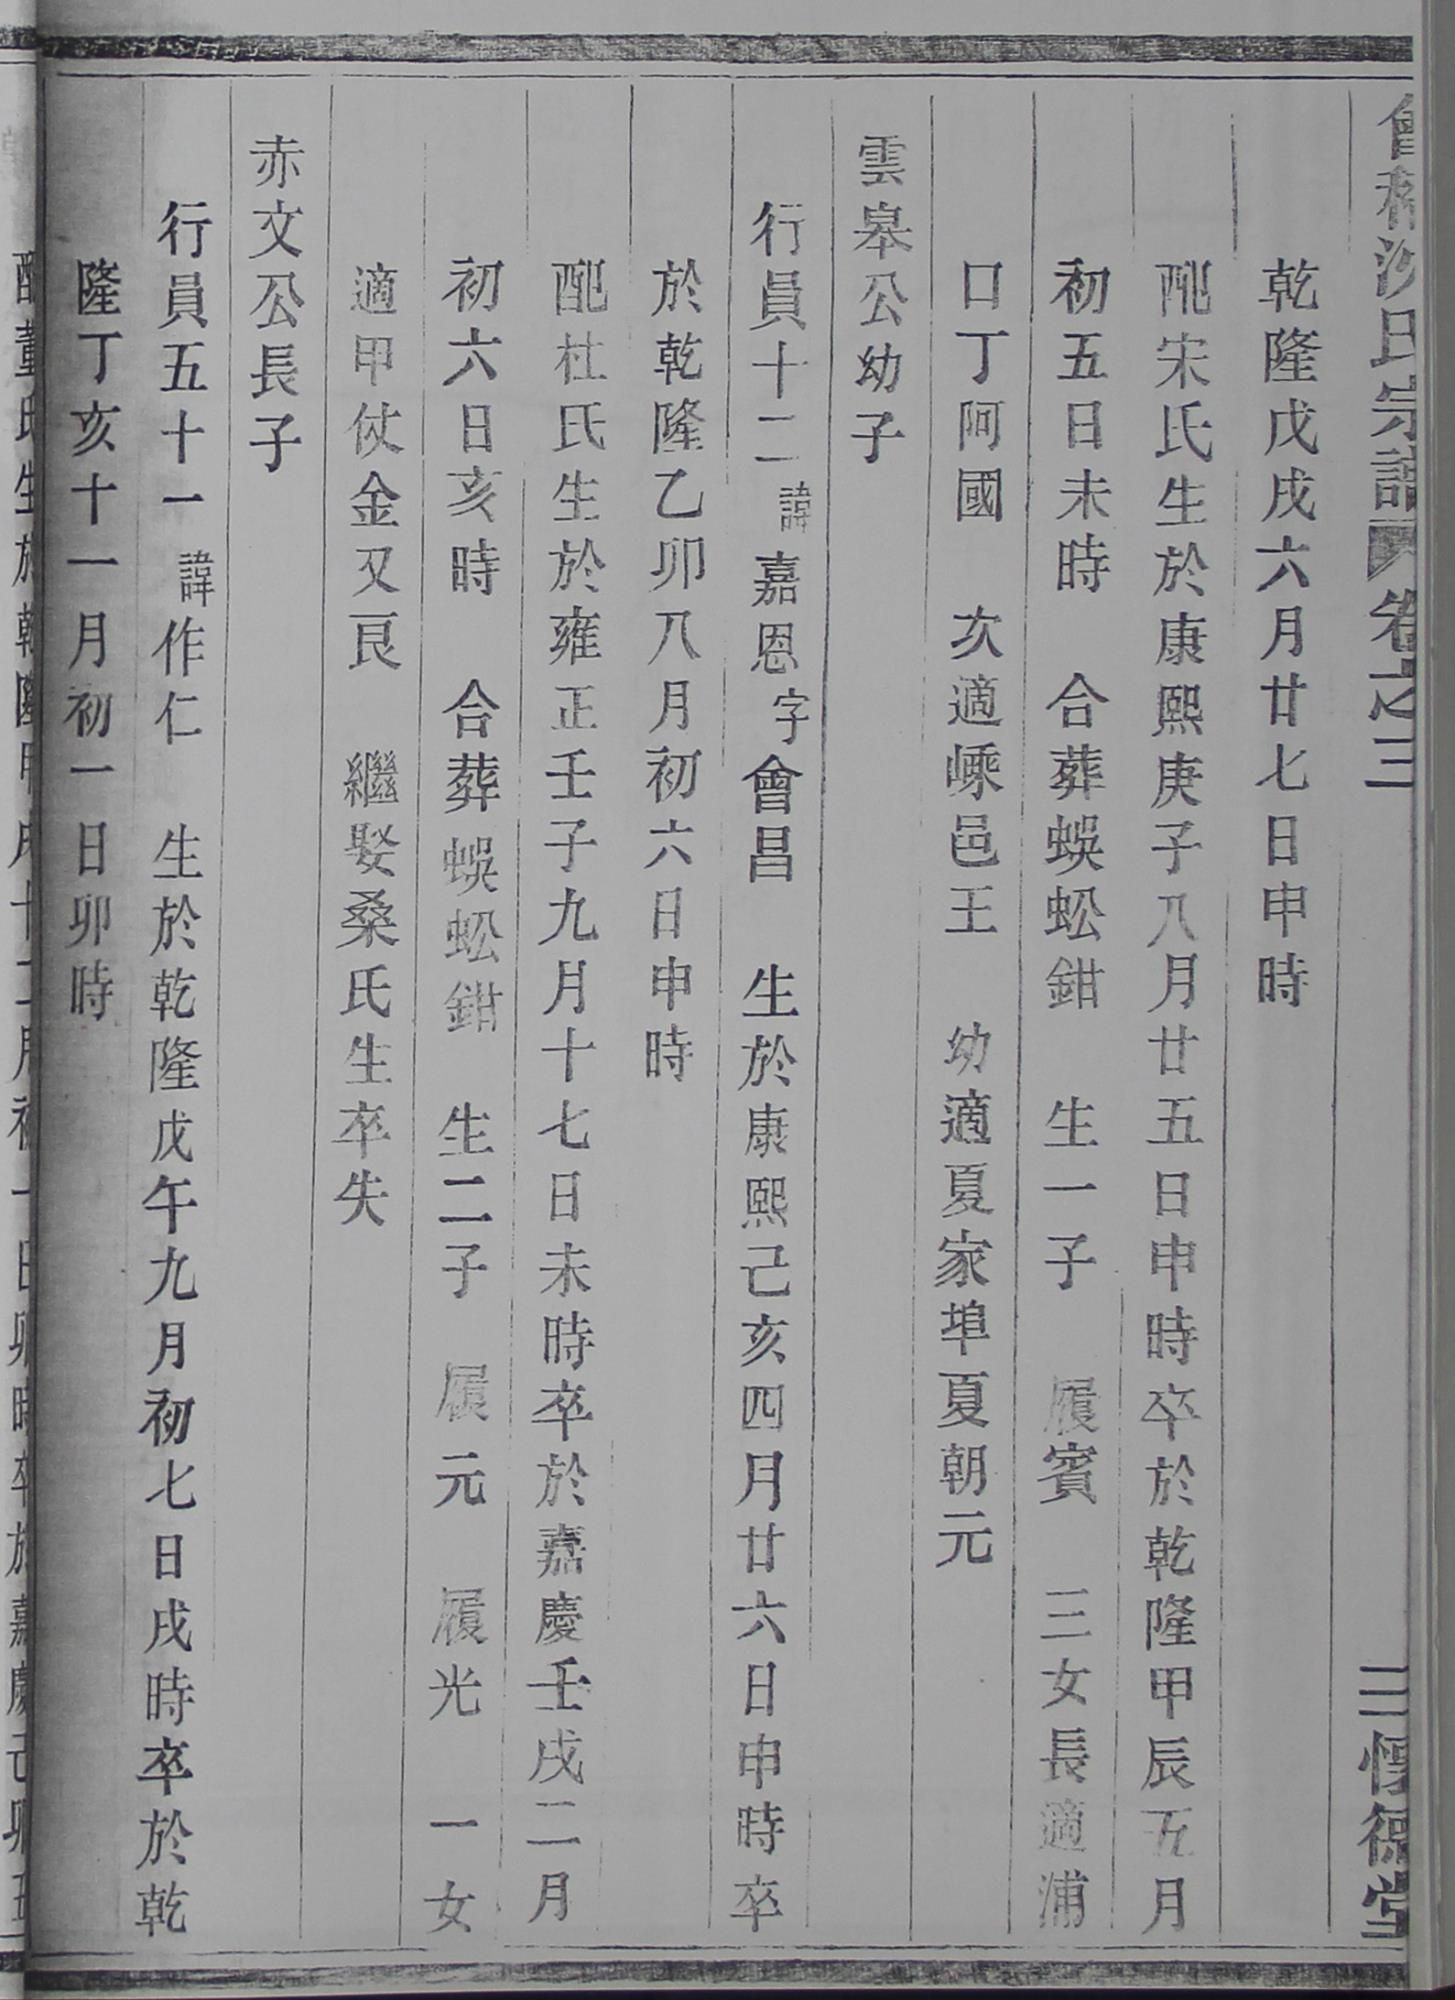 會稽沙氏宗譜 卷之三 三 惇德堂
乾隆戊戌六月廿七日申時
配宋氏生於康熙庚子八月廿五日申時卒於乾隆甲辰五月
初五日未時 合葬蜈蚣鉗 生一子 履賓 三女長適浦
口丁阿國 次適嵊邑王 幼適夏家埠夏朝元
雲皋公幼子
行員十二諱嘉恩字會昌 生於康熙己亥四月廿六日申時卒
於乾隆乙卯八月初六日申時
配杜氏生於雍正壬子九月十七日未時卒於嘉慶壬戌二月
初六日亥時 合葬蜈蚣鉗 生二子 履元 履光 一女
適甲仗金又良 繼娶桑氏生卒失
赤文公長子
行員五十一諱作仁 生於乾隆戊午九月初七日戌時卒於乾
隆丁亥十一月初一日卯時